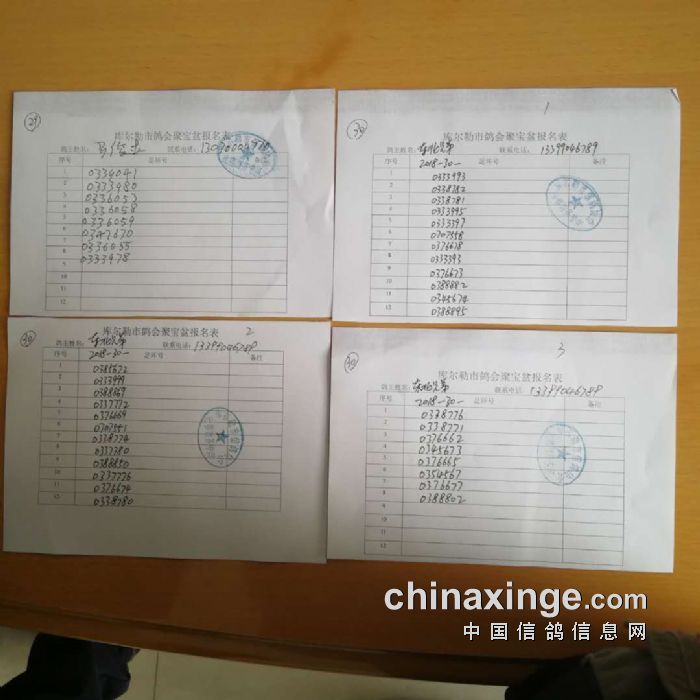 29
库尔勒市鸽会聚宝盆报名表
鸽主姓名:
联系电话:
序号 足环号 备注
1 0334041
2 0333480
3 0336053
4 0336058
5 0336059
6 0347670
7 0336055
8 0333478
9
10
11
12
30
1
库尔勒市鸽会聚宝盆报名表
鸽主姓名: 东北兄弟 联系电话: 13399046789
序号 2018-30- 足环号 备注
1 0333993
2 0338782
3 0338781
4 0333995
5 0333393
6 0707558
7 0376678
8 0333393
9 0376673
10 0388882
11 0345674
12 0388895
30
2
库尔勒市鸽会聚宝盆报名表
鸽主姓名: 东北兄弟 联系电话: 13399046789
序号 2018-30- 足环号 备注
1 0385672
2 0333999
3 0388869
4 0337772
5 0376669
6 0707551
7 0338774
8 0337380
9 0388850
10 0337776
11 0376674
12 0338780
30
3
库尔勒市鸽会聚宝盆报名表
鸽主姓名: 东北兄弟 联系电话: 13399046789
序号 2018-30- 足环号 备注
1 0338776
2 0338771
3 0376662
4 0345673
5 0376665
6 0354567
7 0376677
8 0388802
9
10
11
12
chinaxinge.com
中国信鸽信息网